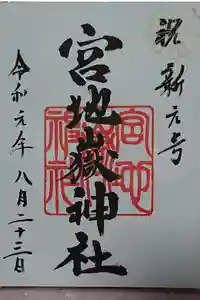 祝 新元号
宮地嶽神社
令和元年八月二十三日
宮地
嶽神
社